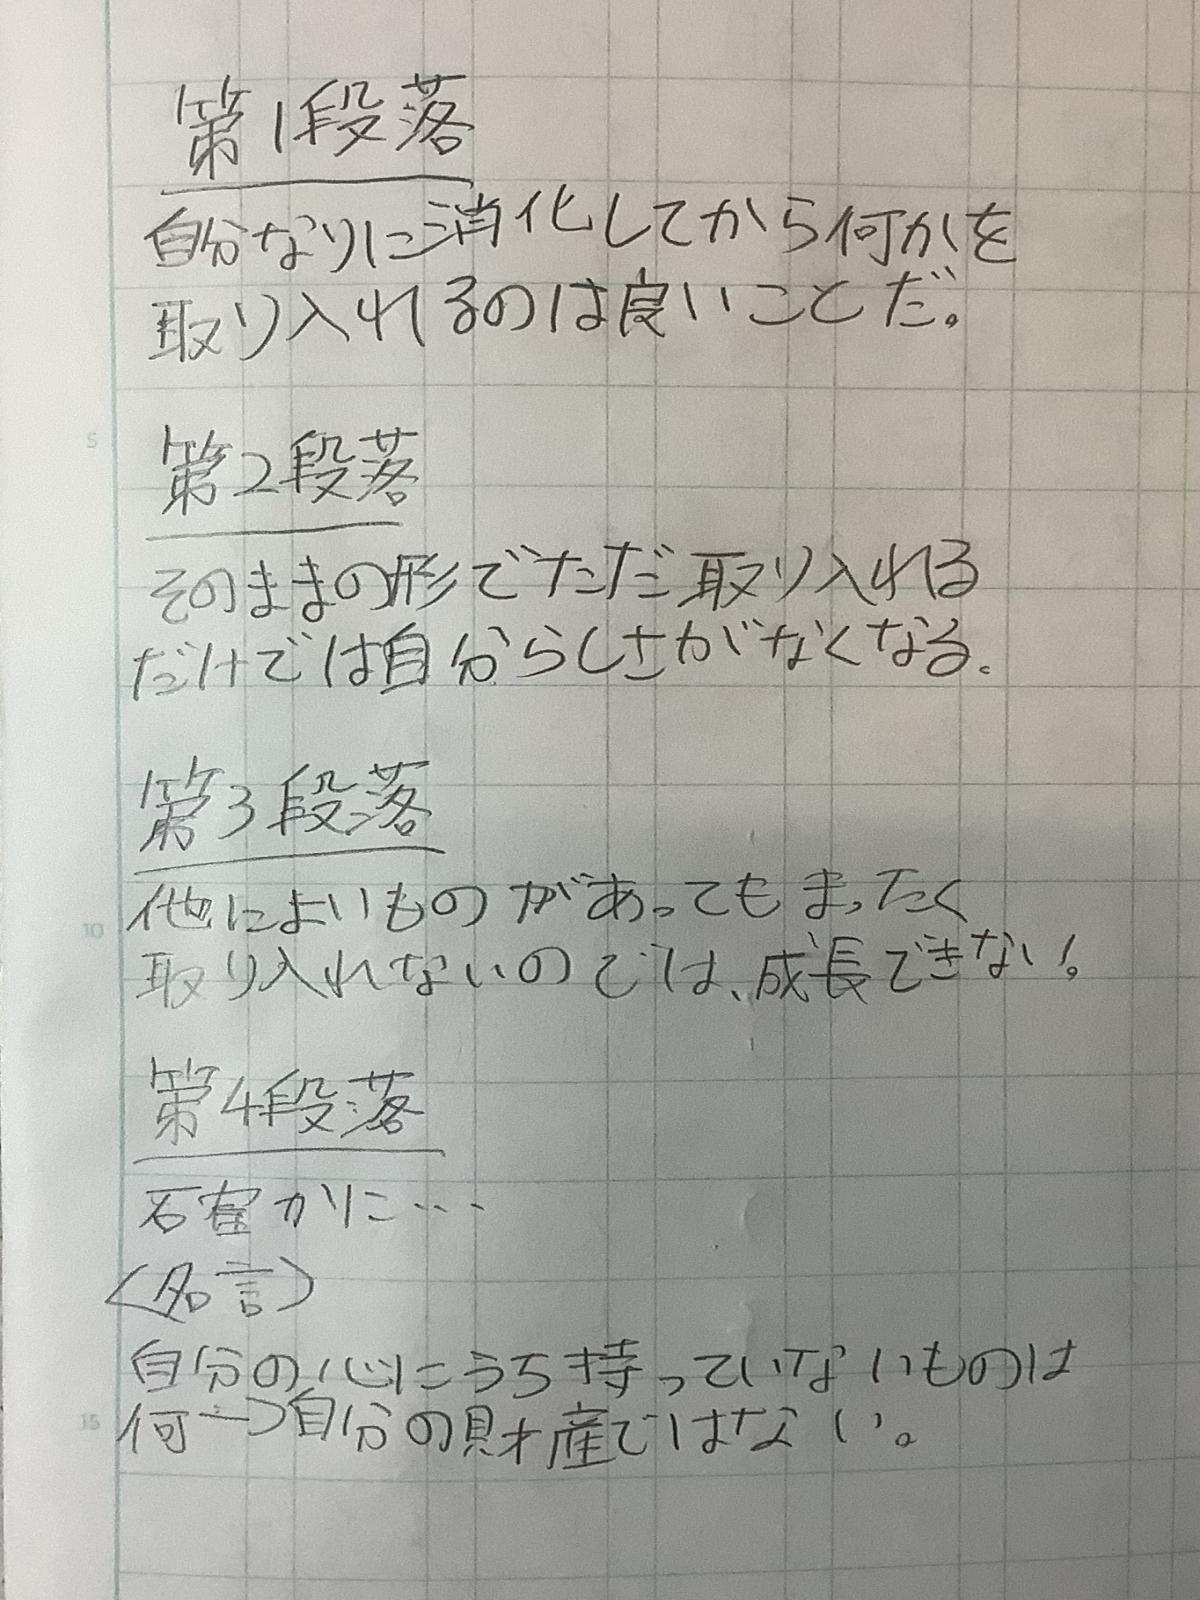 第1段落
自分なりに消化してから何かを
取り入れるのは良いことだ。
5
第2段落
そのままの形でただ取り入れる
だけでは自分らしさがなくなる。
第3段落
他によいものがあってもまったく
10
取り入れないのでは、成長できない。
第4段落
確かに…
〈名言〉
自分の心にうち持っていないものは
15
何一つ自分の財産ではない。